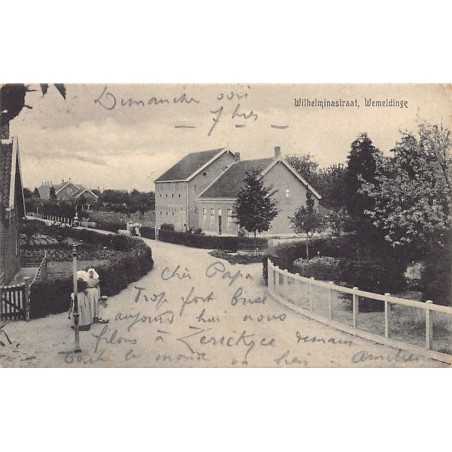 Wilhelminastraat, Wemeldinge
Dimanche soir
7 hrs
cher Papa
Trop fort brise
aujourd hui nous
filons à Zierickzee demain
tout le monde va bien